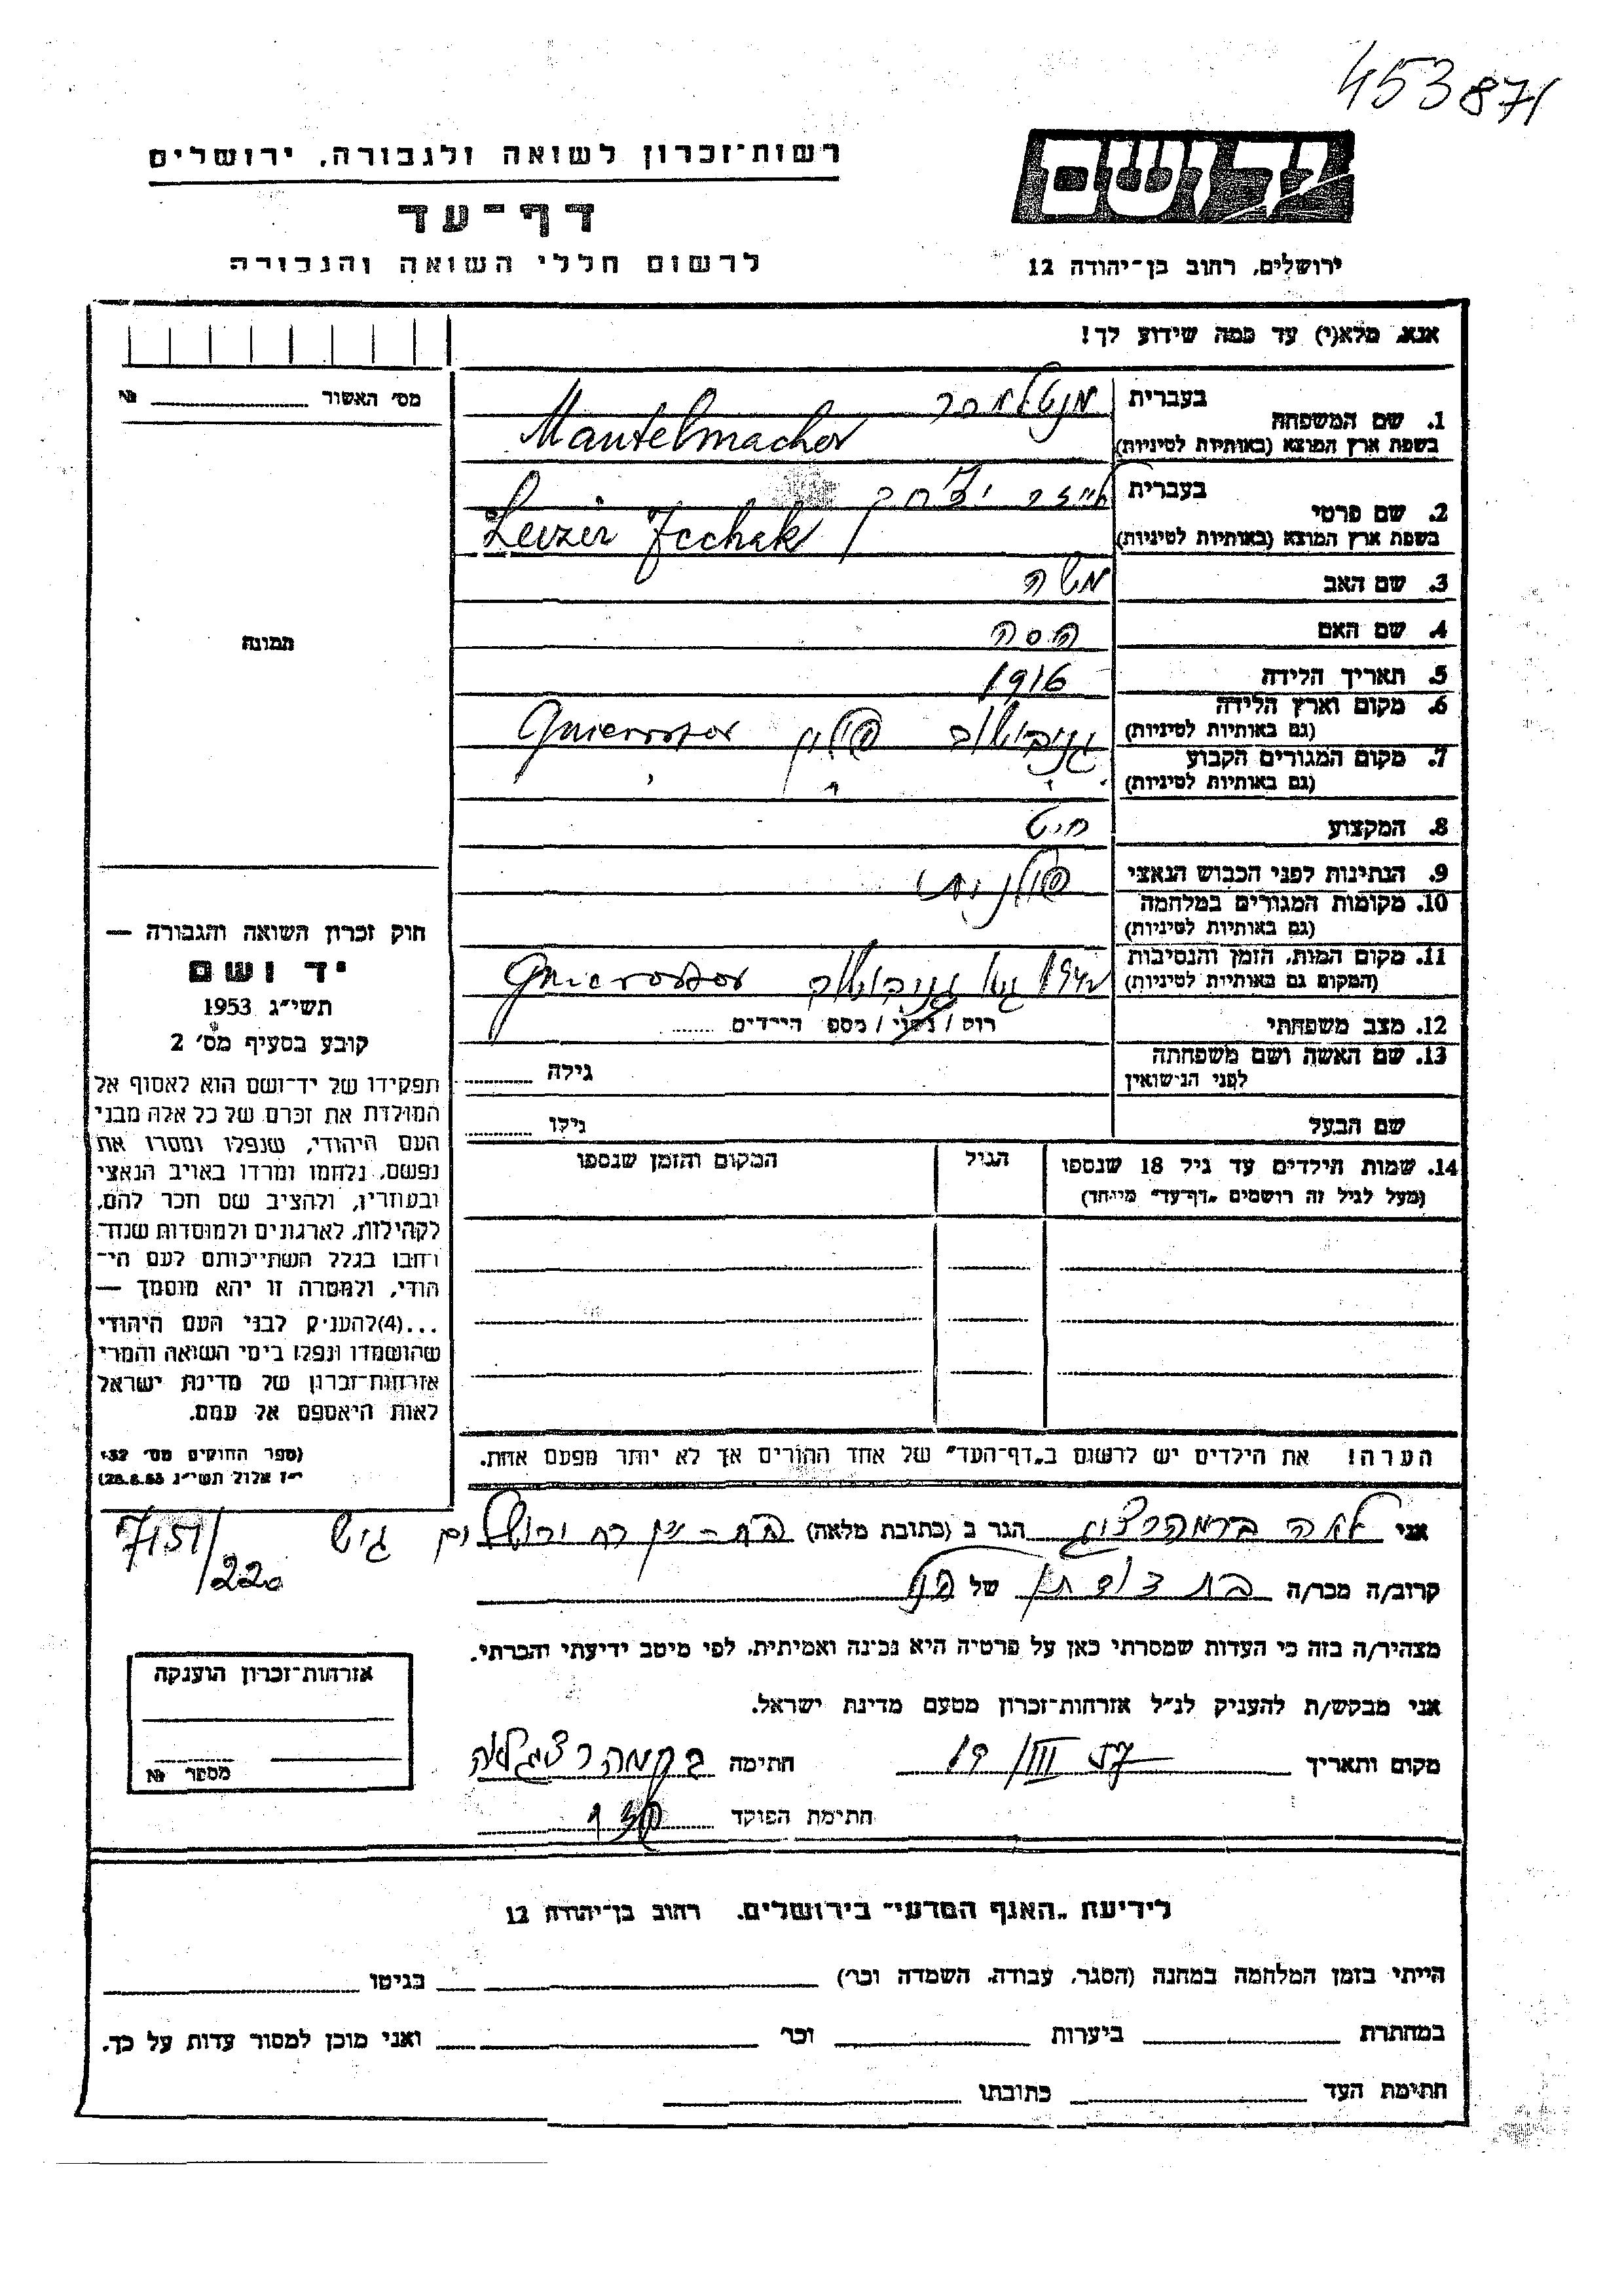 453871
יד ושם
רשות־זכרון לשואה ולגבורה, ירושלים
דף־עד
לרשום חללי השואה והגבורה
ירושלים, רחוב בן־יהודה 12
אנא, מלא(י) עד כמה שידוע לך!
מס׳ האשור № 
1. שם המשפחה בעברית מנטלמכר
בשפת ארץ המוצא (באותיות לטיניות) Mantelmacher
2. שם פרטי בעברית לייזר יצחק
בשפת ארץ המוצא (באותיות לטיניות) Leuzer Icchak
3. שם האב משה
4. שם האם הסה
5. תאריך הלידה 1916
6. מקום וארץ הלידה (גם באותיות לטיניות) גניבושוב פולין Gniewoszow
7. מקום המגורים הקבוע (גם באותיות לטיניות) " " "
8. המקצוע חיט
9. הנתינות לפני הכבוש הנאצי פולנית
10. מקומות המגורים במלחמה (גם באותיות לטיניות)
11. מקום המות, הזמן והנסיבות (המקום גם באותיות לטיניות) גניבושוב Gniewoszow
12. מצב משפחתי רוק / נשוי / מספר הילדים
13. שם האשה ושם משפחתה לפני הנישואין גילה
שם הבעל גילו
14. שמות הילדים עד גיל 18 שנספו (מעל לגיל זה רושמים „דף־עד” מיוחד) הגיל המקום והזמן שנספו
הערה! את הילדים יש לרשום ב„דף־העד” של אחד ההורים אך לא יותר מפעם אחת.
תמונה
חוק זכרון השואה והגבורה —
יד ושם
תשי״ג 1953
קובע בסעיף מס׳ 2
תפקידו של יד־ושם הוא לאסוף אל
המולדת את זכרם של כל אלה מבני
העם היהודי, שנפלו ומסרו את
נפשם, נלחמו ומרדו באויב הנאצי
ובעוזריו, ולהציב שם וזכר להם,
לקהילות, לארגונים ולמוסדות שנח־
רבו בגלל השתייכותם לעם הי־
הודי, ולמטרה זו יהא מוסמך —
...(4) להעניק לבני העם היהודי
שהושמדו ונפלו בימי השואה והמרי
אזרחות־זכרון של מדינת ישראל
לאות היאספם אל עמם.
(ספר החוקים מס׳ 132
י״ז אלול תשי״ג 28.8.53)
אני לאה ברמהרצוג הגר ב (כתובת מלאה) בת-ים רח ירושלים גוש 7151/220
קרוב/ה מכר/ה בת דודתו של הנ״ל
מצהיר/ה בזה כי העדות שמסרתי כאן על פרטיה היא נכונה ואמיתית, לפי מיטב ידיעתי והכרתי.
אני מבקש/ת להעניק לנ״ל אזרחות־זכרון מטעם מדינת ישראל.
מקום ותאריך 19/III 57 חתימה
חתימת הפוקד
אזרחות־זכרון הוענקה
מספר №
לידיעת „האגף המדעי” בירושלים, רחוב בן־יהודה 12
הייתי בזמן המלחמה במחנה (הסגר, עבודה, השמדה וכו׳) בגיטו
במחתרת ביערות וכו׳ ואני מוכן למסור עדות על כך.
חתימת העד כתובתו